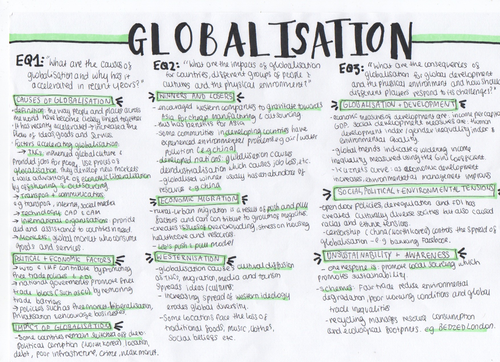 GLOBALISATION
EQ1: "What are the causes of
globalisation and why has it
accelerated in recent years?"
CAUSES OF GLOBALISATION
the way people and places across
the world have become closely linked together
factors accelerating globalisation
provided jobs for people. Use process of
globalisation they develop new markets
& take advantage of economic liberalisation
eg offshoring & outsourcing
→ transport & communications
eg transport, internet, social media
→ technology CAD + CAM
→ international organisations provide
aid and assistance to countries in need
→ markets global market who consume
goods and services
POLITICAL & ECONOMIC FACTORS
WTO & IMF contribute by promoting
free trade policies & FDI
national governments promote free
trade blocs (such as EU) by removing
trade barriers
policies such as free market liberalisation,
privatisation encourage businesses
IMPACT OF GLOBALISATION
Some countries remain switched off due to
political corruption (North Korea) location,
debt, poor infrastructure, crime,
EQ2: "What are the impacts of globalisation
for countries, different groups of people &
cultures and the physical environment?"
WINNERS AND LOSERS
encouraged western companies to gravitate towards
the for cheap manufacturing & outsourcing
had benefits for Asia
Some communities in developing countries have
experienced environmental problems eg air/water
pollution eg china
developed nations globalisation causes
deindustrialisation which causes job loss, etc
globalisation winner likely has an abundance of
resources eg china
ECONOMIC MIGRATION
rural-urban migration is a result of push and pull
factors and can contribute to growing megacities
creates issues of overcrowding, stress on housing
healthcare and resources
push & pull model
WESTERNISATION
globalisation causes cultural diffusion
migration, media and tourism
spreads ideas/culture
increasing spread of western ideology
erodes global diversity
Some locations face the loss of
traditional foods, music, clothes,
Social beliefs etc.
EQ3: "What are the consequences of
globalisation for global development
and the physical environment and how should
different players respond to its challenges?"
GLOBALISATION + DEVELOPMENT
economic measures of development are income per capita
GDP. Social development measures are human
development index/gender inequality index &
environmental quality
global trends indicate a widening income
inequality measured using the Gini Coefficient
Kuznets curve: as economic development
increases environmental management improves
SOCIAL, POLITICAL + ENVIRONMENTAL TENSIONS
open door policies, deregulation and FDI has
created culturally diverse cities but also caused
racial and ethnic tensions
censorship (China/North Korea) controls the spread of
globalisation - eg banning Facebook.
UNSUSTAINABILITY + AWARENESS
one response is promote local sourcing which
promotes sustainability
schemes: fair trade reduce environmental
degradation, poor working conditions and global
trade inequalities
recycling manages resource consumption
and ecological footprints. eg. BEDZED London